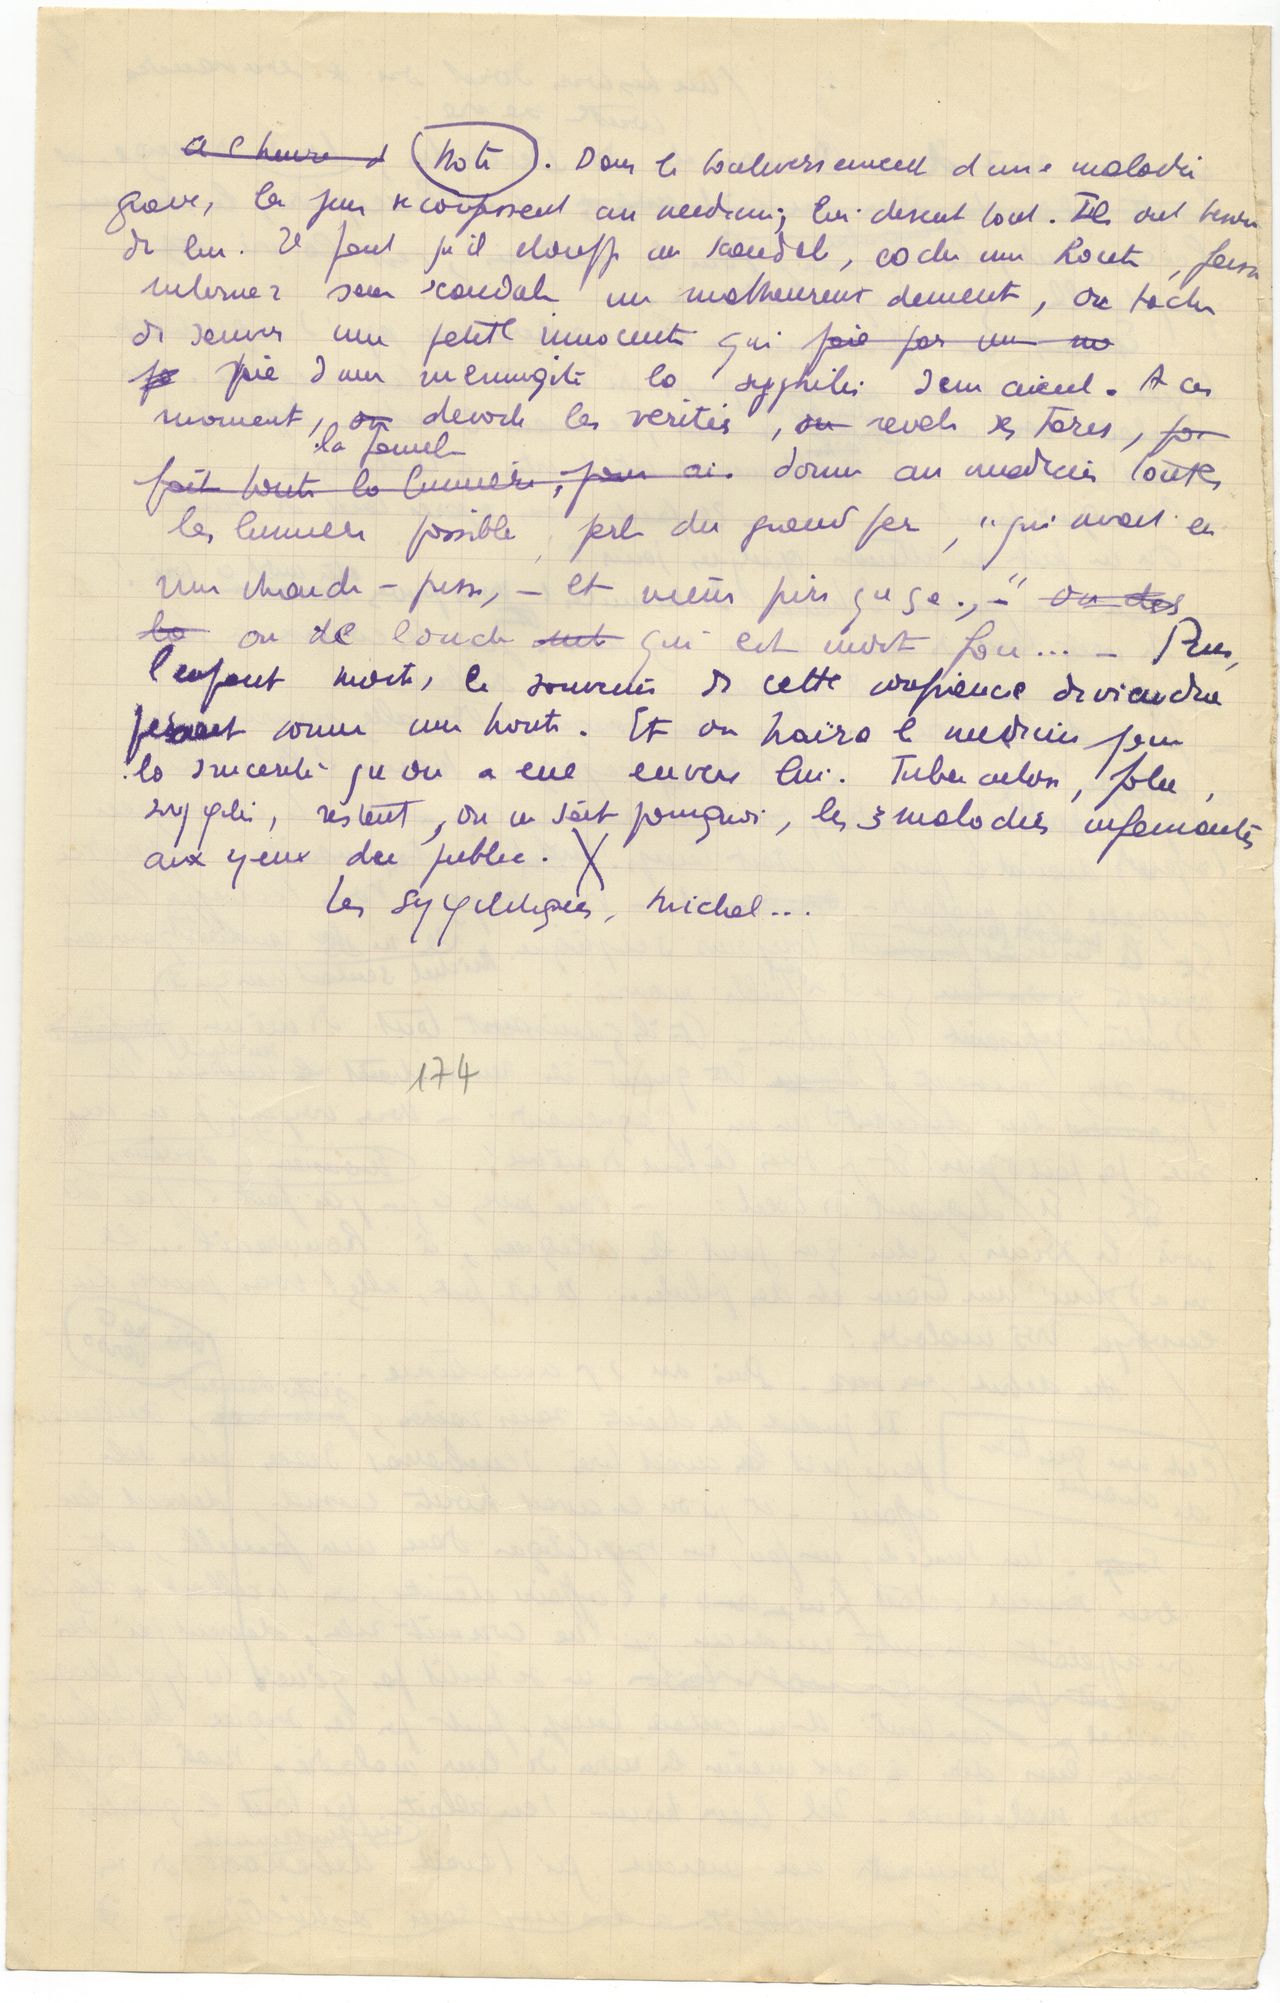 a l heure d Note. Dans le bouleversement d'une maladie
grave, les gens se confessent au médecin, lui disent tout. Ils ont besoin
de lui. Il faut qu'il étouffe un scandale, cache une honte, fasse
interner sans scandale un malheureux dément, ou tâche
de sauver une petite innocente qui paie par une
paie d'une méningite la syphilis d'un aïeul. A ces
moments, on dévoile les vérités, on révèle ses tares,
la famille
fait toute la lumière, pour donne au médecin toutes
les lumières possible, parle du grand père, "qui avait eu
une chaude-pisse, - et même pire que ça., -" ou des
la ou de l'oncle qui est mort fou... - Puis,
l'enfant morte, le souvenir de cette confiance deviendra
pesant comme une honte. Et on haïra le médecin pour
la sincérité qu'on a eue envers lui. Tuberculose, folie,
syphilis, restent, on ne sait pourquoi, les 3 maladies infamantes
aux yeux du public. X
Les syphiligraphes, Michel...
174